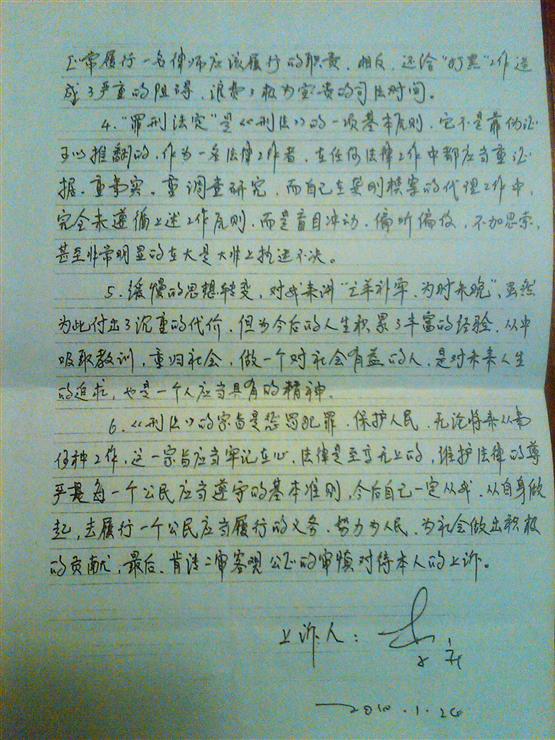 正常履行一名律师应该履行的职责，相反，还给“打黑”工作造
成了严重的阻碍，浪费了极为宝贵的司法时间。
4.“罪刑法定”是《刑法》的一项基本原则，它不是靠伪证
可以推翻的，作为一名法律工作者，在任何法律工作中都应当重证
据、重事实、重调查研究，而自己在龚刚模案的代理工作中，
完全未遵循上述工作原则，而是盲目冲动、偏听偏信，不加思索，
甚至非常明显的在大是大非上犹迟不决。
5.缓慢的思想转变，对我来讲“亡羊补牢，为时未晚”，虽然
为此付出了沉重的代价，但为今后的人生积累了丰富的经验，从中
吸取教训，重归社会，做一个对社会有益的人，是对未来人生
的追求，也是一个人应当具有的精神。
6.《刑法》的宗旨是惩罚犯罪、保护人民，无论将来从事
何种工作，这一宗旨应当牢记在心，法律是至高无上的，维护法律的尊
严是每一个公民应当遵守的基本准则，今后自己一定从我、从自身做
起，去履行一个公民应当履行的义务，努力为人民、为社会做出积极
的贡献，最后，肯请二审客观公正的审慎对待本人的上诉。
上诉人：
2010.1.26